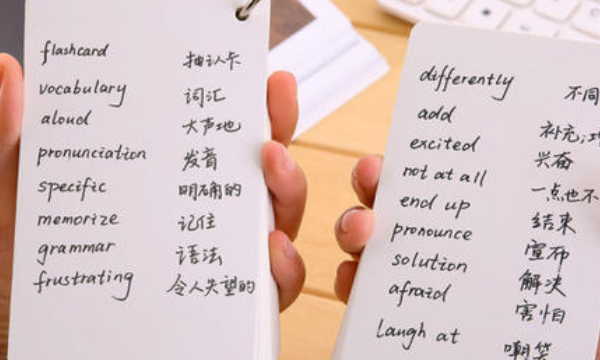 flashcard 抽认卡
vocabulary 词汇
aloud 大声地
pronunciation 发音
specific 明确的
memorize 记住
grammar 语法
frustrating 令人失望的
differently 不同
add 补充;
excited 兴奋
not at all 一点也不
end up 结束
pronounce 宣布
solution 解决
afraid 害怕
laugh at 嘲笑